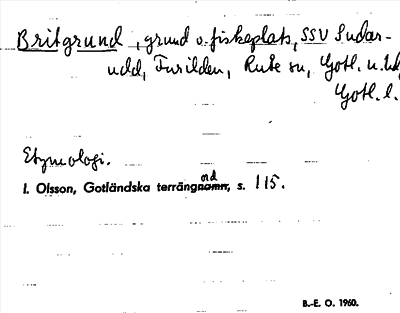 Britgrund, grund o. fiskeplats, SSV Sudar-
udd, Furilden, Rute sn, Gotl. n. hd,
Gotl. l.
Etymologi.
I. Olsson, Gotländska terrängnamn, ord s. 115.
B.-E. O. 1960.